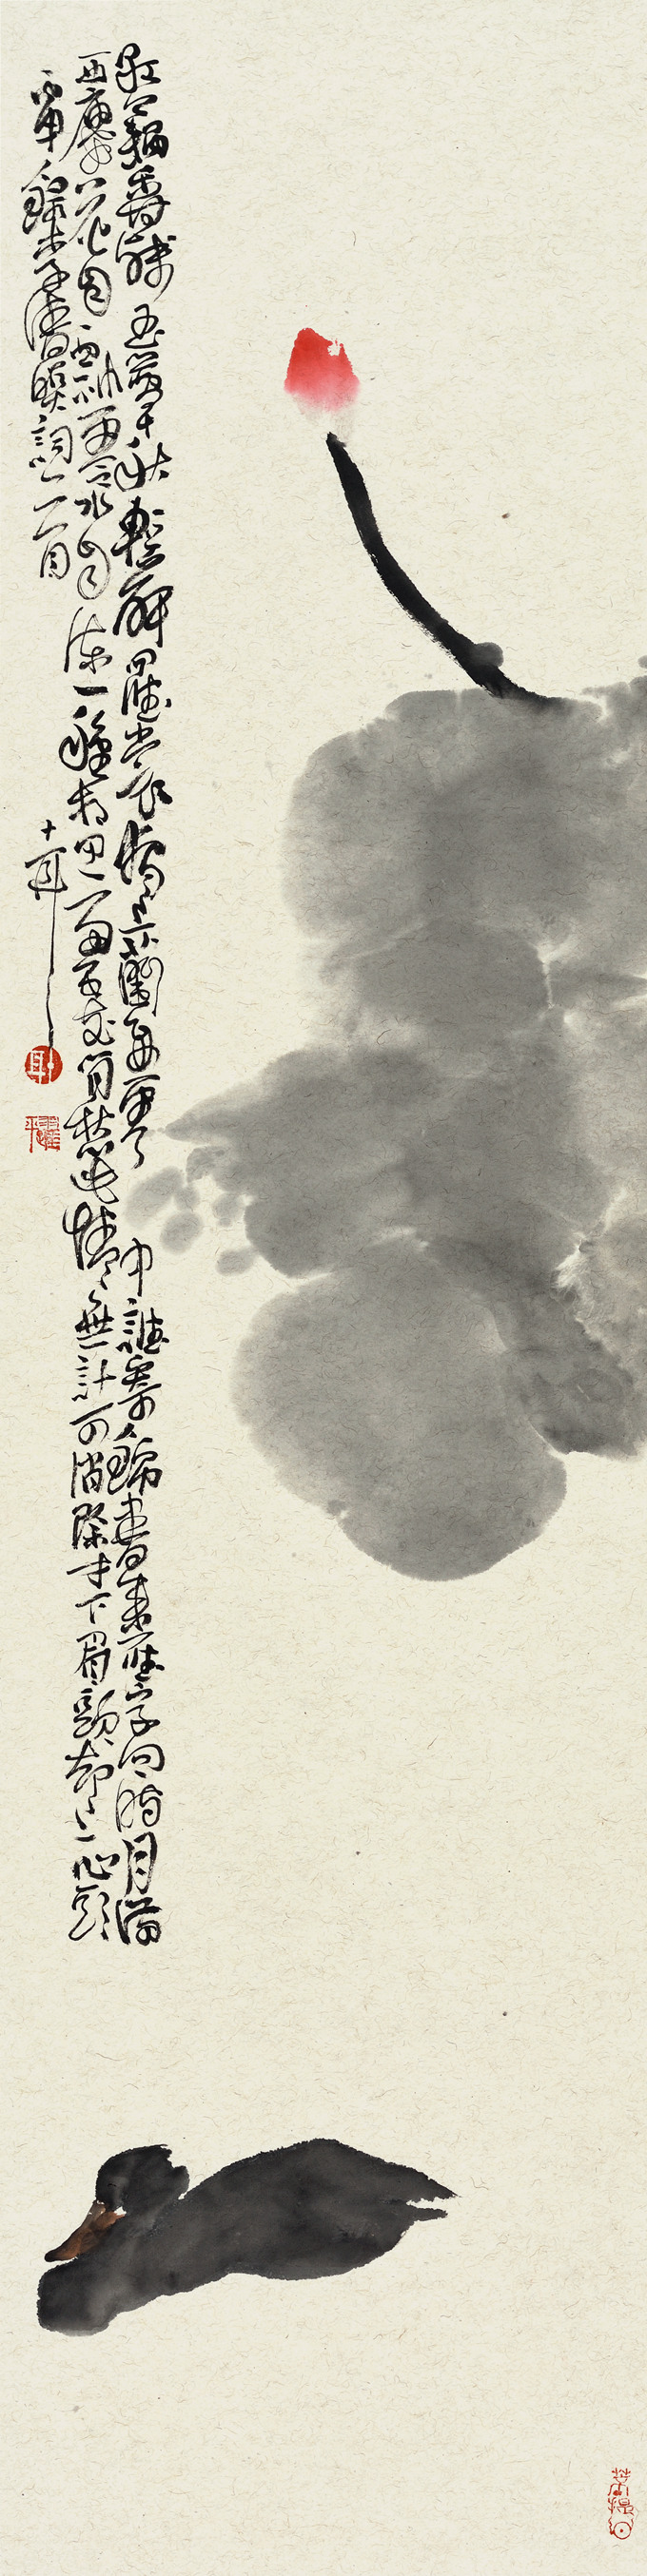 紅藕香殘玉簟秋輕解羅裳獨上蘭舟雲中誰寄錦書來雁字回時月滿
西廔花自飄零水自流一種相思兩處閒愁此情無計可消除才下眉頭卻上心頭
丙申錄李清照詞一首